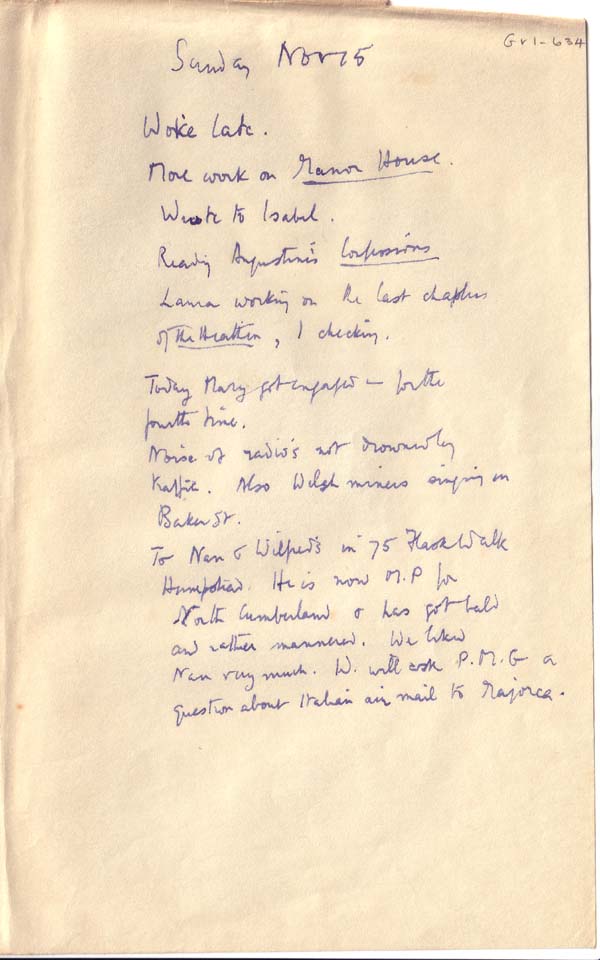 Gr1-634
Sunday Nov 15
Woke late.
More work on Manor House.
Wrote to Isabel.
Reading Augustine's Confessions
Laura working on the last chapters
of The Heathen, I checking.
Today Mary got engaged — for the
fourth time.
Noise of radio's not drowned by
traffic. Also Welsh miners singing in
Baker St.
To Nan & Wilfred's in 75 Flask Walk
Hampstead. He is now M.P for
North Cumberland & has got bald
and rather mannered. We liked
Nan very much. W. will ask P.M.G a
question about Italian air mail to Majorca.